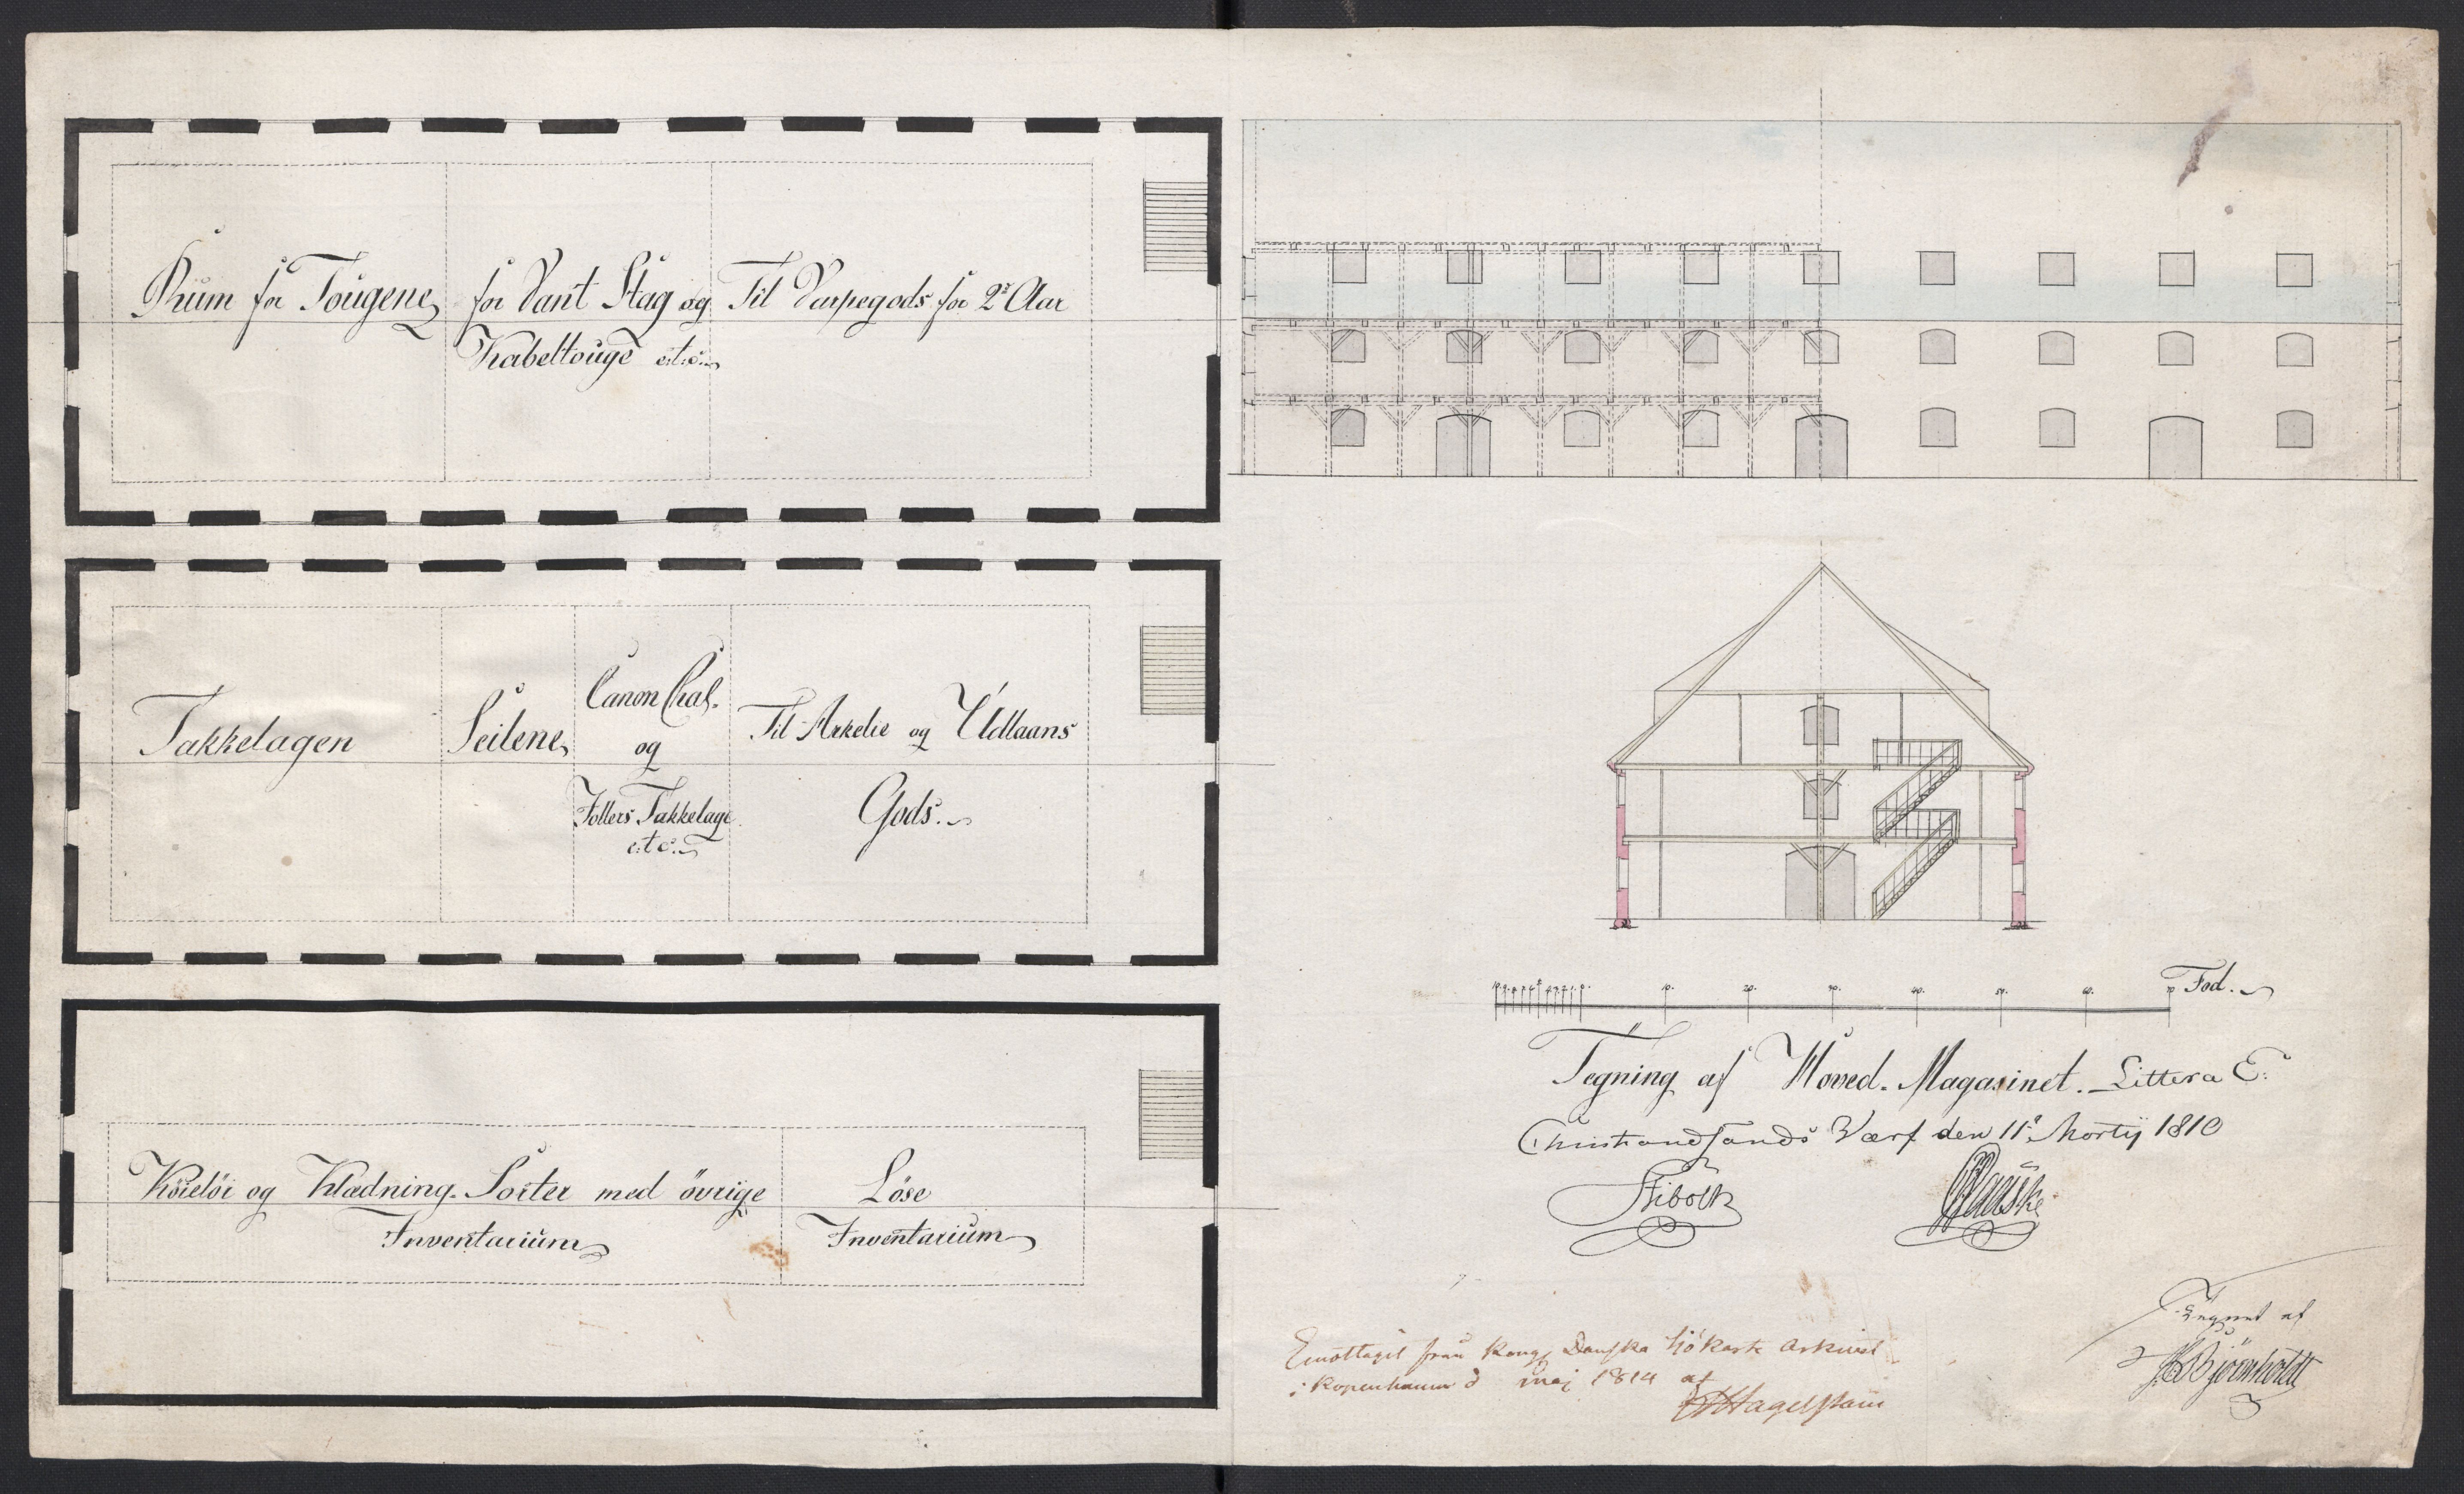 Rum for Tougene
for Vant Stag og
Kabeltouge etc.
Til Varpegods for 2de Aar
Takkelagen
Seilene
Canon Chal.
og
Jollers Takkelage
etc.
Til Arkelie og Udlaans
Gods.
Köielöi og Klædning-Sorter med övrige
Inventarium
Löse
Inventarium
10. 20. 30. 40. 50. 60. 70 Fod.
Tegning af Hoved-Magasinet. Littera E:
Christiandsands Værf den 11te Martij 1810
Stibolt
Emottagit från Kongl Danska Sjökarte Arkivet
i Kopenhamn d maj 1814 af
Hagelstam
Tegnet af
Björnholdt